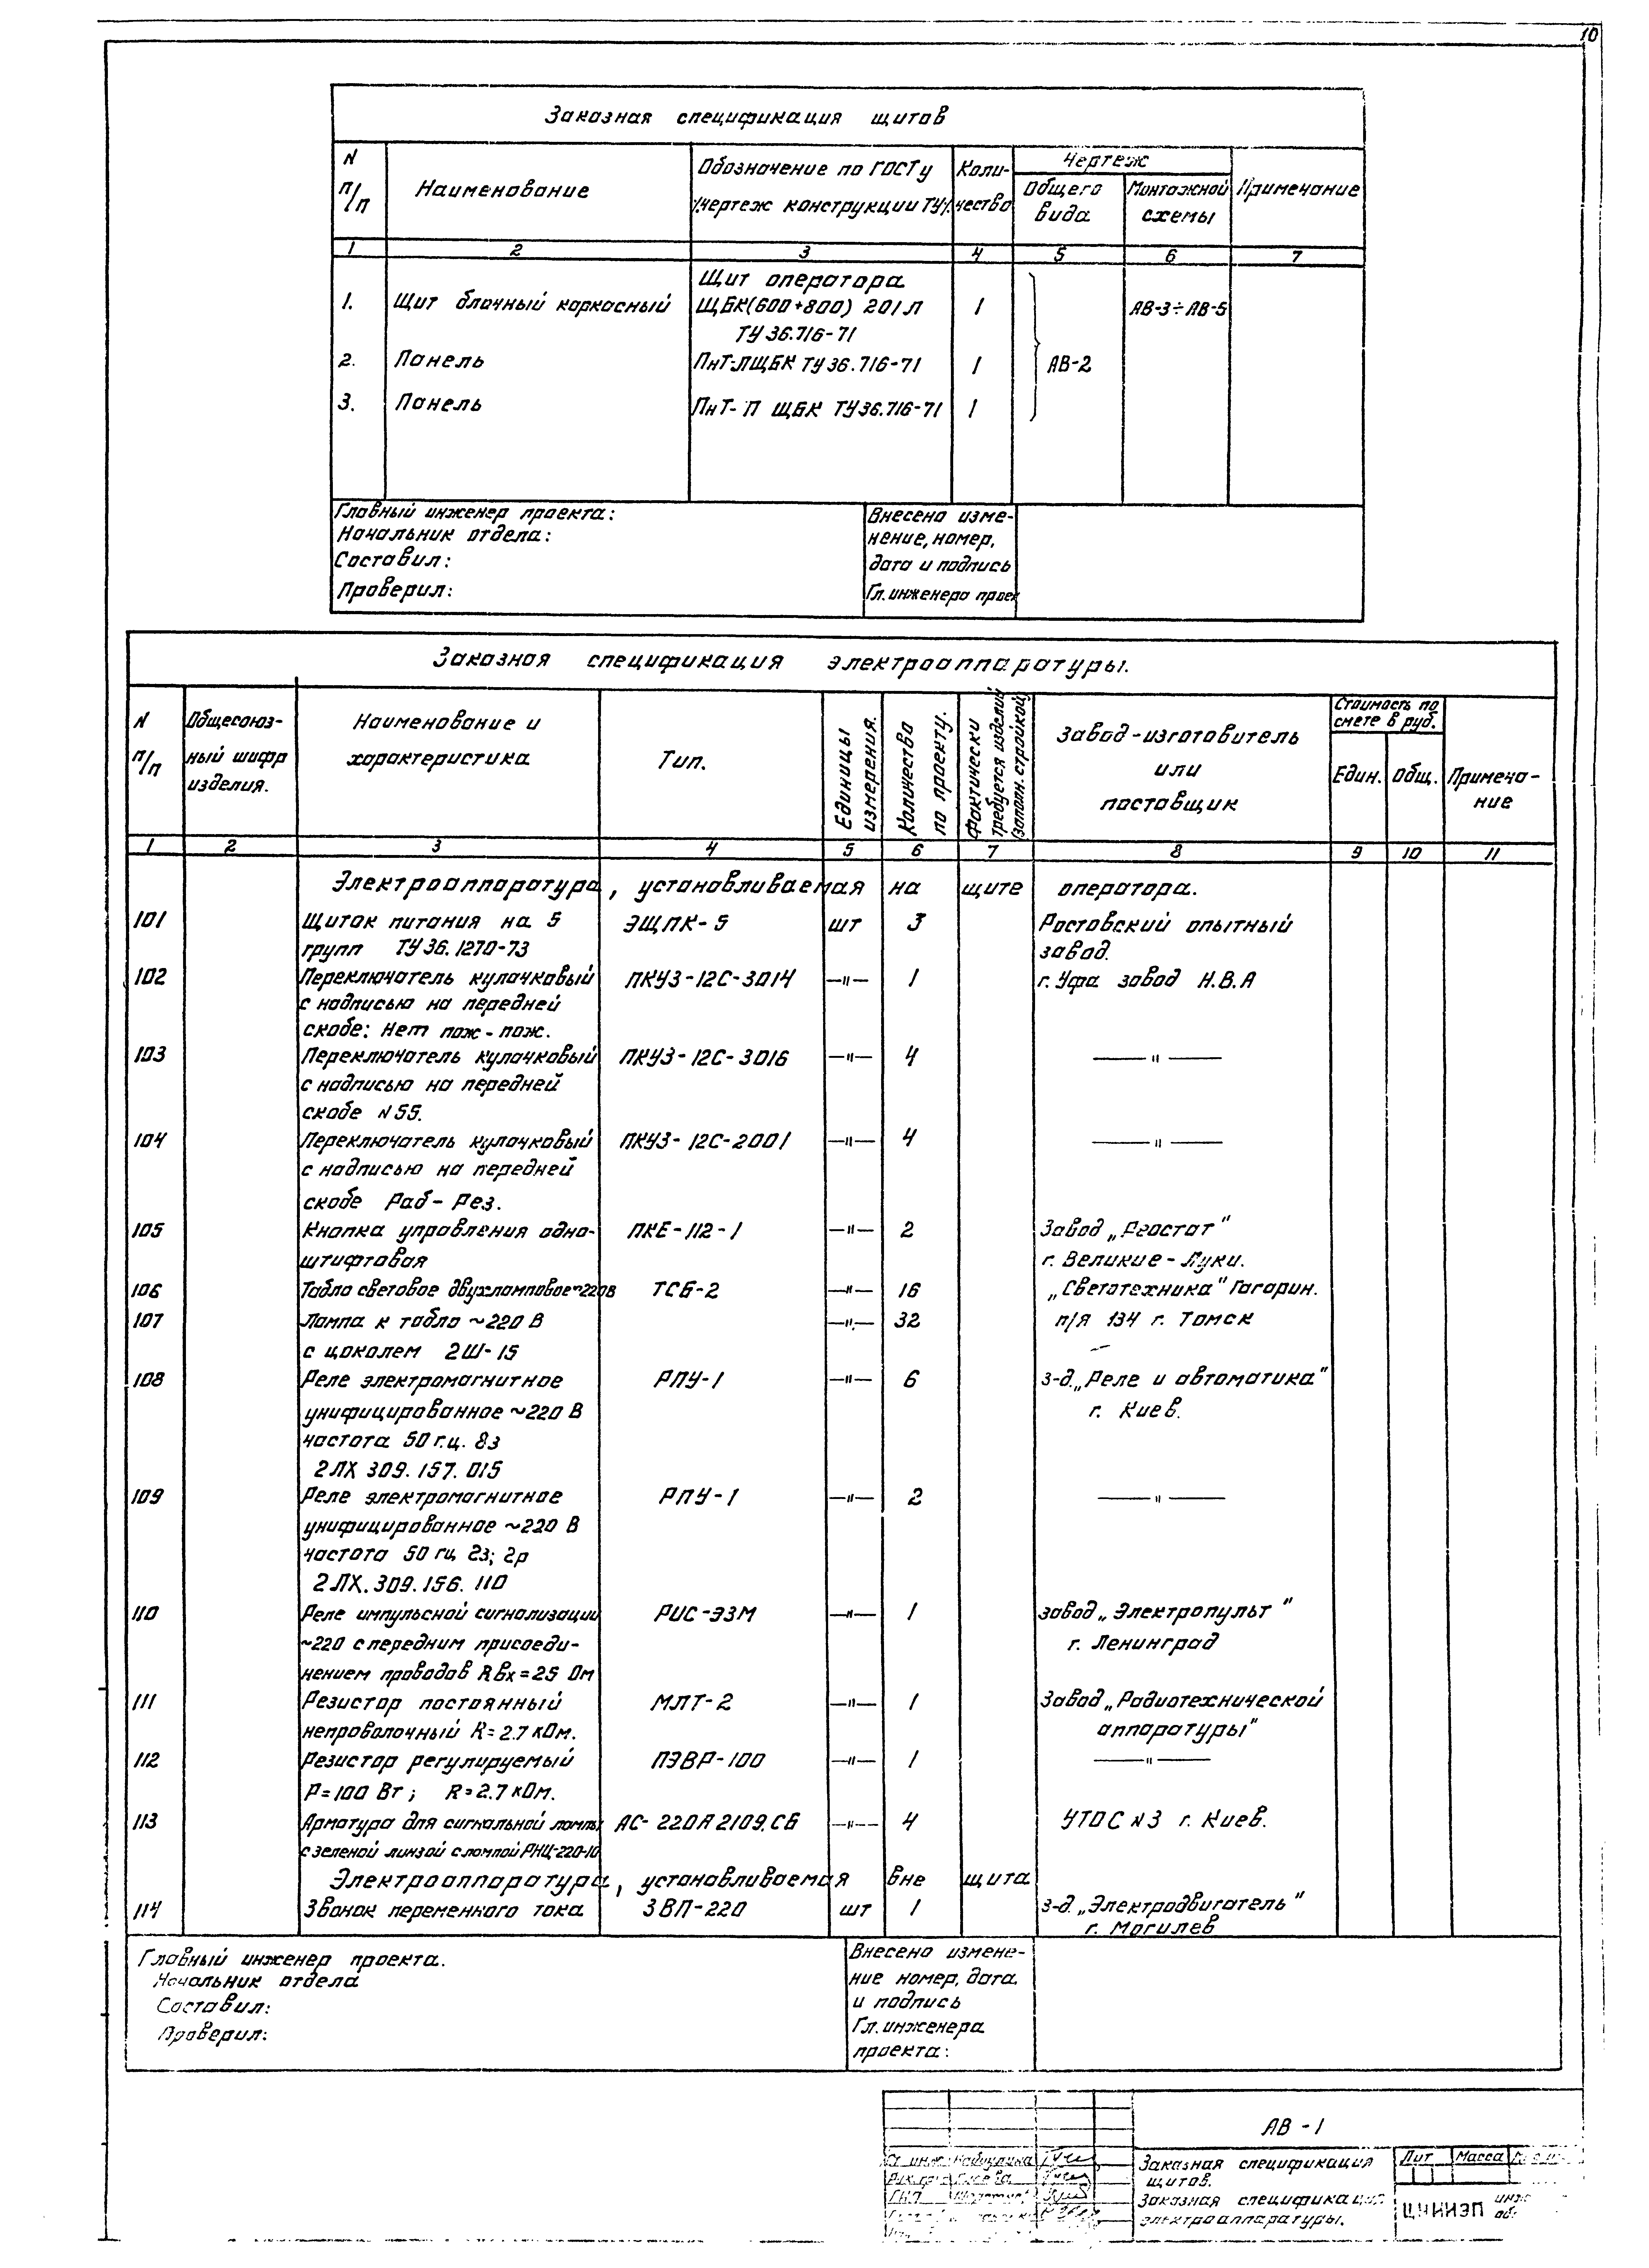 10
Заказная спецификация щитов
N п/п
Наименование
Обозначение по ГОСТу /чертеж конструкции ТУ/
Количество
Чертеж
Общего вида
Монтажной схемы
Примечание
1 2 3 4 5 6 7
Щит оператора
1. Щит блочный каркасный ЩБК(600+800) 201Л 1 АВ-3÷АВ-5
ТУ 36.716-71
2. Панель ПнТ-ЛЩБК ТУ 36.716-71 1 АВ-2
3. Панель ПнТ-П ЩБК ТУ36.716-71 1
Главный инженер проекта:
Начальник отдела:
Составил:
Проверил:
Внесено изме-
нение, номер,
дата и подпись
Гл. инженера проек
Заказная спецификация электроаппаратуры.
N п/п
Общесоюз-
ный шифр
изделия.
Наименование и
характеристика
Тип.
Единицы измерения.
Количество по проекту.
Фактически требуется изделий (заполн. стройкой)
Завод-изготовитель
или
поставщик
Стоимость по
смете в руб.
Един. Общ.
Примеча-
ние
1 2 3 4 5 6 7 8 9 10 11
Электроаппаратура, устанавливаемая на щите оператора.
101 Щиток питания на 5 ЭЩПК-5 шт 3 Ростовский опытный
групп ТУ 36.1270-73 завод.
102 Переключатель кулачковый ПКУ3-12С-3014 —"— 1 г. Уфа завод Н.В.А
с надписью на передней
скобе: Нет пож-пож.
103 Переключатель кулачковый ПКУ3-12С-3016 —"— 4 —"—
с надписью на передней
скобе N55.
104 Переключатель кулачковый ПКУ3-12С-2001 —"— 4 —"—
с надписью на передней
скобе Раб-Рез.
105 Кнопка управления одно- ПКЕ-112-1 —"— 2 Завод „Реостат"
штифтовая г. Великие-Луки.
106 Табло световое двухламповое~220В ТСБ-2 —"— 16 „Светотехника" Гагарин.
107 Лампа к табло ~220 В —"— 32 п/я 134 г. Томск
с цоколем 2Ш-15
108 Реле электромагнитное РПУ-1 —"— 6 з-д.„Реле и автоматика"
унифицированное ~220 В г. Киев.
частота 50 гц. 8з
2ЛХ 309.157.015
109 Реле электромагнитное РПУ-1 —"— 2 —"—
унифицированное ~220 В
частота 50 гц 2з; 2р
2ЛХ.309.156.110
110 Реле импульсной сигнализации РИС-ЭЗМ —"— 1 завод „Электропульт"
~220 с передним присоеди- г. Ленинград
нением проводов Rвх=25 Ом
111 Резистор постоянный МЛТ-2 —"— 1 Завод „Радиотехнической
непроволочный R=2.7 кОм. аппаратуры"
112 Резистор регулируемый ПЭВР-100 —"— 1 —"—
Р=100 Вт; R=2.7 кОм.
113 Арматура для сигнальной лампы АС-220Л2109.СБ —"— 4 УТОС N3 г. Киев.
с зеленой линзой с лампой РНЦ-220-10
Электроаппаратура, устанавливаемая вне щита
114 Звонок переменного тока ЗВП-220 шт 1 з-д.„Электродвигатель"
г. Могилев
Главный инженер проекта.
Начальник отдела
Составил:
Проверил:
Внесено измене-
ние номер, дата.
и подпись
Гл. инженера
проекта:
АВ-1
Заказная спецификация
щитов.
Заказная спецификация
электроаппаратуры.
Лит Масса
ЦНИИЭП